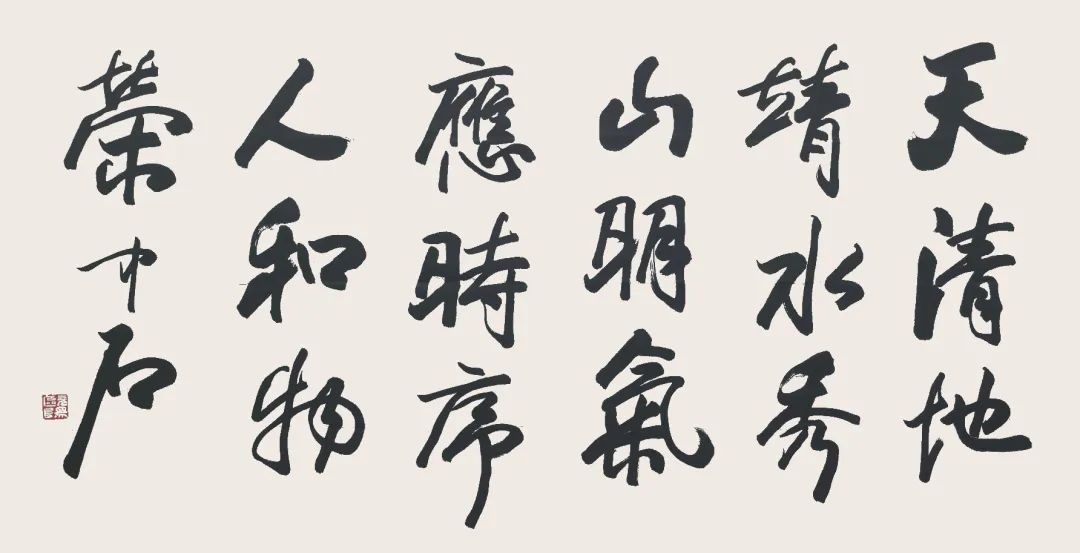 天清地
靖水秀
山明氣
應時序
人和物
榮中石